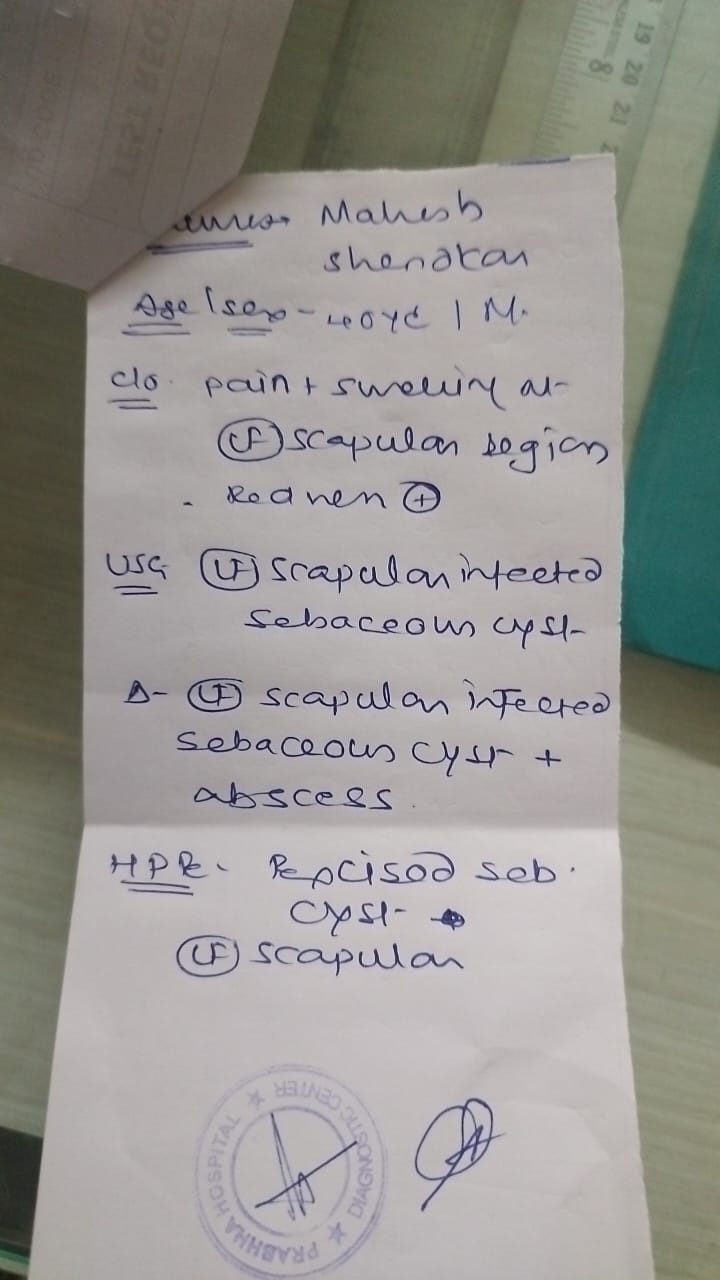 Mahesh
Shendkar
Age/sex - 40yr / M.
c/o. pain + swelling at
(Lt) scapular region
- Redness (+)
USG (Lt) scapular infected
sebaceous cyst
Δ- (Lt) scapular infected
sebaceous cyst +
abscess.
HPR - Excised seb.
cyst
(Lt) scapular
PRABHHA HOSPITAL ★ DIAGNOSTIC CENTER ★
TEST REQU
19 20 21
8